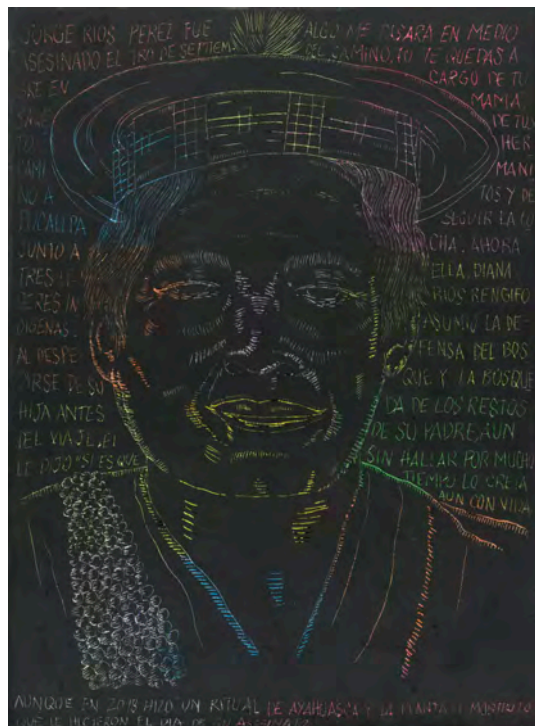 JORGE RIOS PEREZ FUE
ASESINADO EL 1RO DE SEPTIEM
BRE EN
SAWE
TO
CAMI
NO A
PUCALLPA
JUNTO A
TRES LI
DERES IN
DIGENAS.
AL DESPE
DIRSE DE SU
HIJA ANTES
DEL VIAJE, EL
LE DIJO "SI ES QUE
ALGO ME PASARA EN MEDIO
DEL CAMINO, TU TE QUEDAS A
CARGO DE TU
MAMA,
DE TUS
HER
MANI
TOS Y DE
SEGUIR LA LU
CHA. AHORA
ELLA, DIANA
RIOS RENGIFO
ASUMIO LA DE-
FENSA DEL BOS
QUE Y LA BOSQUE
DA DE LOS RESTOS
DE SU PADRE, AUN
SIN HALLAR POR MUCHO
TIEMPO LO CREIA
AUN CON VIDA
AUNQUE EN 2018 HIZO UN RITUAL DE AYAHUASCA Y LA PLANTA
QUE LE HICIERON EL DIA DE SU ASESINATO